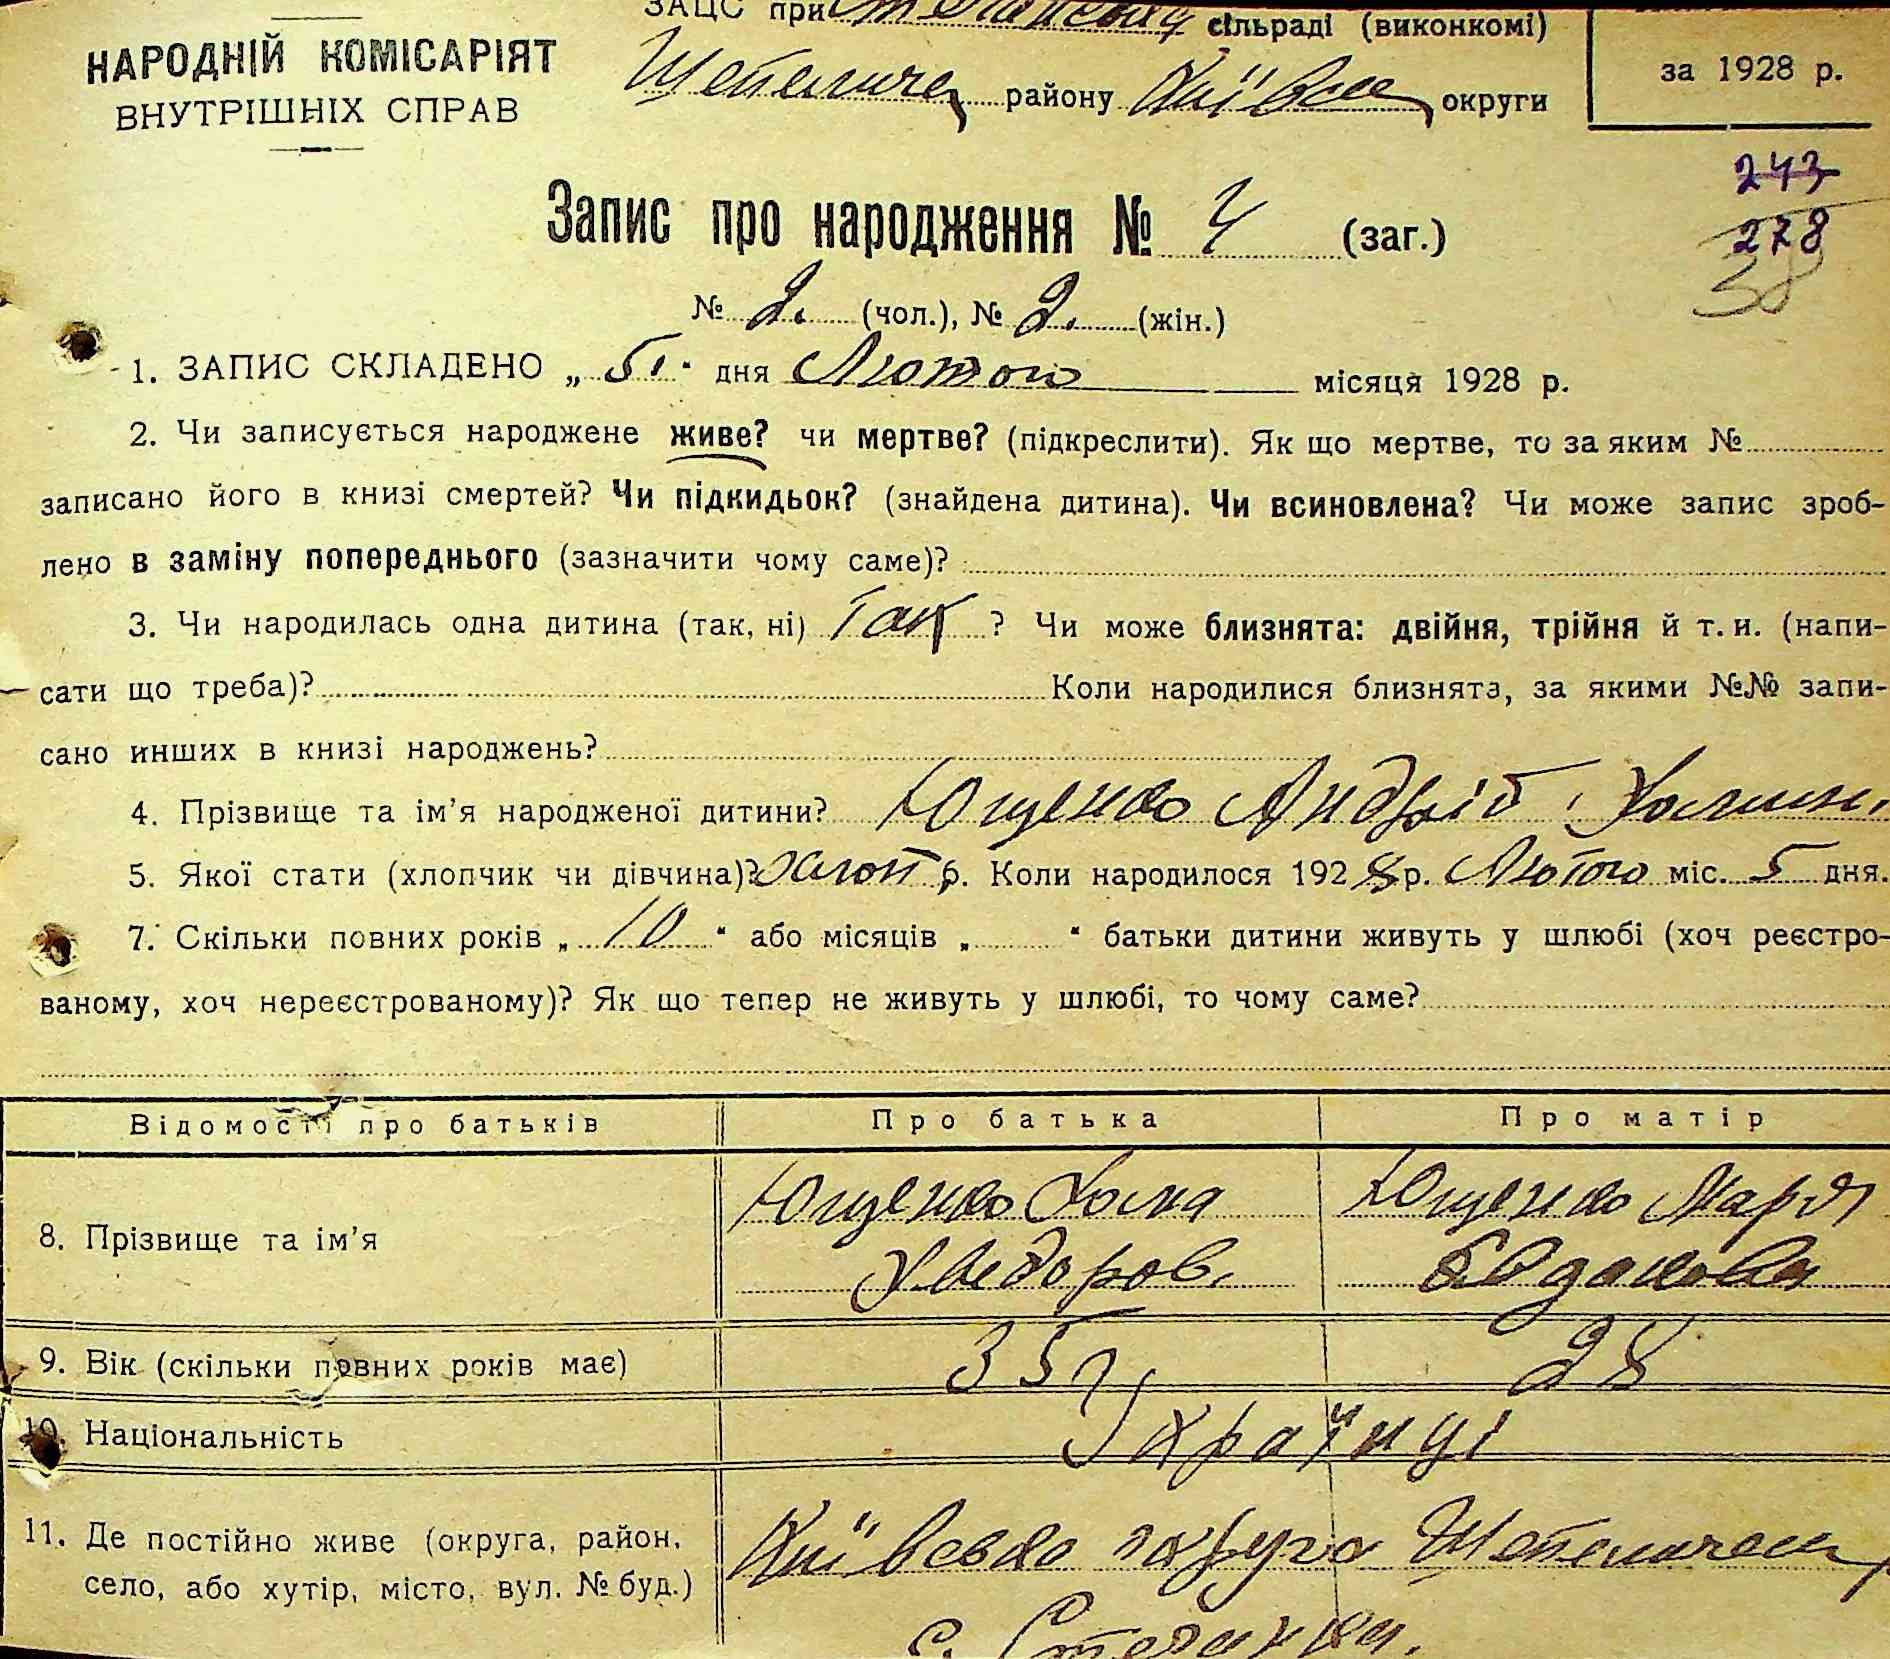 ЗАЦС при сільраді (виконкомі)
НАРОДНІЙ КОМІСАРІЯТ
ВНУТРІШНІХ СПРАВ
Шепелич району Київськ округи
за 1928 р.
243
278
38
Запис про народження № 4 (заг.)
№ 2. (чол.), № 2. (жін.)
1. ЗАПИС СКЛАДЕНО „ 5 “ дня Лютого місяця 1928 р.
2. Чи записується народжене живе? чи мертве? (підкреслити). Як що мертве, то за яким №
записано його в книзі смертей? Чи підкидьок? (знайдена дитина). Чи всиновлена? Чи може запис зроб-
лено в заміну попереднього (зазначити чому саме)?
3. Чи народилась одна дитина (так, ні) Так ? Чи може близнята: двійня, трійня й т. и. (напи-
сати що треба)? Коли народилися близнята, за якими №№ запи-
сано инших в книзі народжень?
4. Прізвище та ім’я народженої дитини? Ющенко Андрій Хомин.
5. Якої стати (хлопчик чи дівчина)? хлоп 6. Коли народилося 1928 р. Лютого міс. 5 дня.
7. Скільки повних років „ 10 “ або місяців „ “ батьки дитини живуть у шлюбі (хоч реєстро-
ваному, хоч нереєстрованому)? Як що тепер не живуть у шлюбі, то чому саме?
Відомості про батьків Про батька Про матір
8. Прізвище та ім’я Ющенко Хома Ющенко Марія
Хведоров.
9. Вік (скільки повних років має) 35 р 28
10. Національність Українці
11. Де постійно живе (округа, район, Київсько округа Шепелическ
село, або хутір, місто, вул. № буд.)
с. Стечанка.